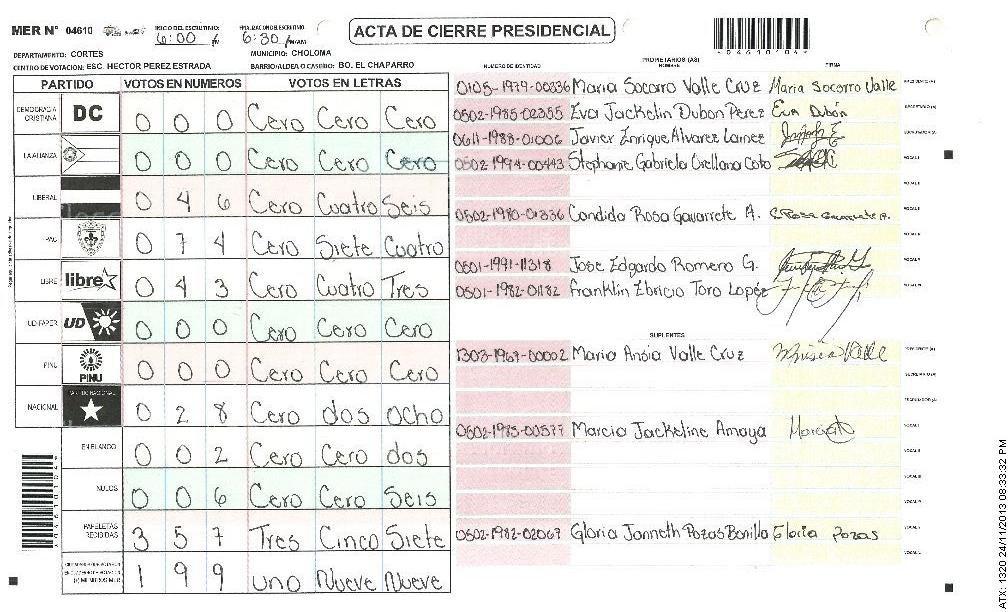 MER Nº 04610
INICIO DEL ESCRUTINIO: 6:00 P
FINALIZACION DEL ESCRUTINIO 6:30 P M/AM
ACTA DE CIERRE PRESIDENCIAL
04610104
DEPARTAMENTO: CORTES
MUNICIPIO: CHOLOMA
CENTRO DE VOTACION: ESC. HECTOR PEREZ ESTRADA
BARRIO/ALDEA O CASERIO: BO. EL CHAPARRO
PARTIDO VOTOS EN NUMEROS VOTOS EN LETRAS
DEMOCRACIA CRISTIANA DC 0 0 0 Cero Cero Cero
LA ALIANZA 0 0 0 Cero Cero Cero
LIBERAL 0 4 6 Cero Cuatro Seis
PAC 0 7 4 Cero Siete Cuatro
LIBRE libre 0 4 3 Cero Cuatro Tres
UD-FAPER UD 0 0 0 Cero Cero Cero
PINU PINU 0 0 0 Cero Cero Cero
NACIONAL PARTIDO NACIONAL 0 2 8 Cero dos ocho
EN BLANCO 0 0 2 Cero Cero dos
NULOS 0 0 6 Cero Cero Seis
PAPELETAS RECIBIDAS 3 5 7 Tres Cinco Siete
1 9 9 uno Nueve Nueve
PROPIETARIOS (AS)
NUMERO DE IDENTIDAD NOMBRE FIRMA
0105-1979-00336 Maria Socorro Valle Cruz Maria Socorro Valle PRESIDENTE (A)
0502-1985-02355 Eva Jackelin Dubon Perez Eva Dubón SECRETARIO (A)
0611-1988-01006 Javier Enrique Alvarez Lainez ESCRUTADOR (A)
0502-1994-00443 Stephanie Gabriela Orellana Coto VOCAL I
VOCAL II
0502-1980-01336 Candida Rosa Gavarrete A. C Rosa Gavarrete A. VOCAL III
VOCAL IV
0501-1991-11318 Jose Edgardo Romero G. VOCAL V
0501-1982-01182 Franklin Ebricio Toro Lopéz
SUPLENTES
1303-1967-00002 Maria Ansia Valle Cruz PRESIDENTE (A)
SECRETARIO (A)
ESCRUTADOR (A)
0502-1985-00577 Marcia Jackeline Amaya VOCAL I
VOCAL II
VOCAL III
VOCAL IV
0502-1982-02067 Gloria Janneth Pozas Bonilla Gloria Pozas VOCAL V
ATX: 1320 24/11/2013 08:33:32 PM